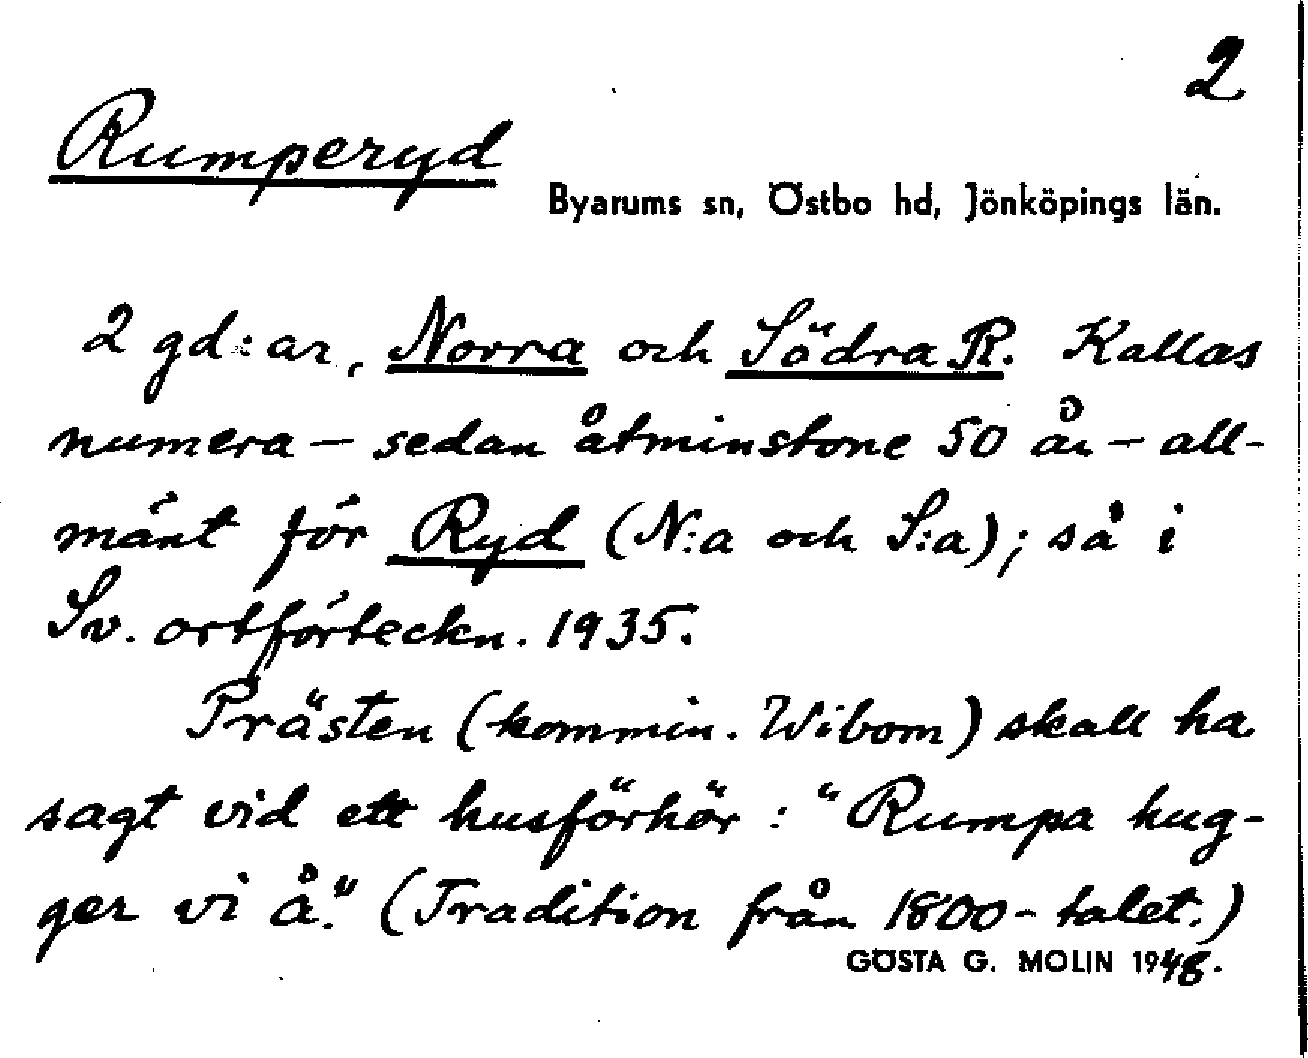 2
Rumperyd
Byarums sn, Östbo hd, Jönköpings län.
2 gd:ar, Norra och Södra R. Kallas
numera – sedan åtminstone 50 år – all-
mänt för Ryd (N:a och S:a); så i
Sv. ortförteckn. 1935.
Prästen (kommin. Wibom) skall ha
sagt vid ett husförhör: "Rumpa hug-
ger vi å." (Tradition från 1800-talet.)
GÖSTA G. MOLIN 1948.